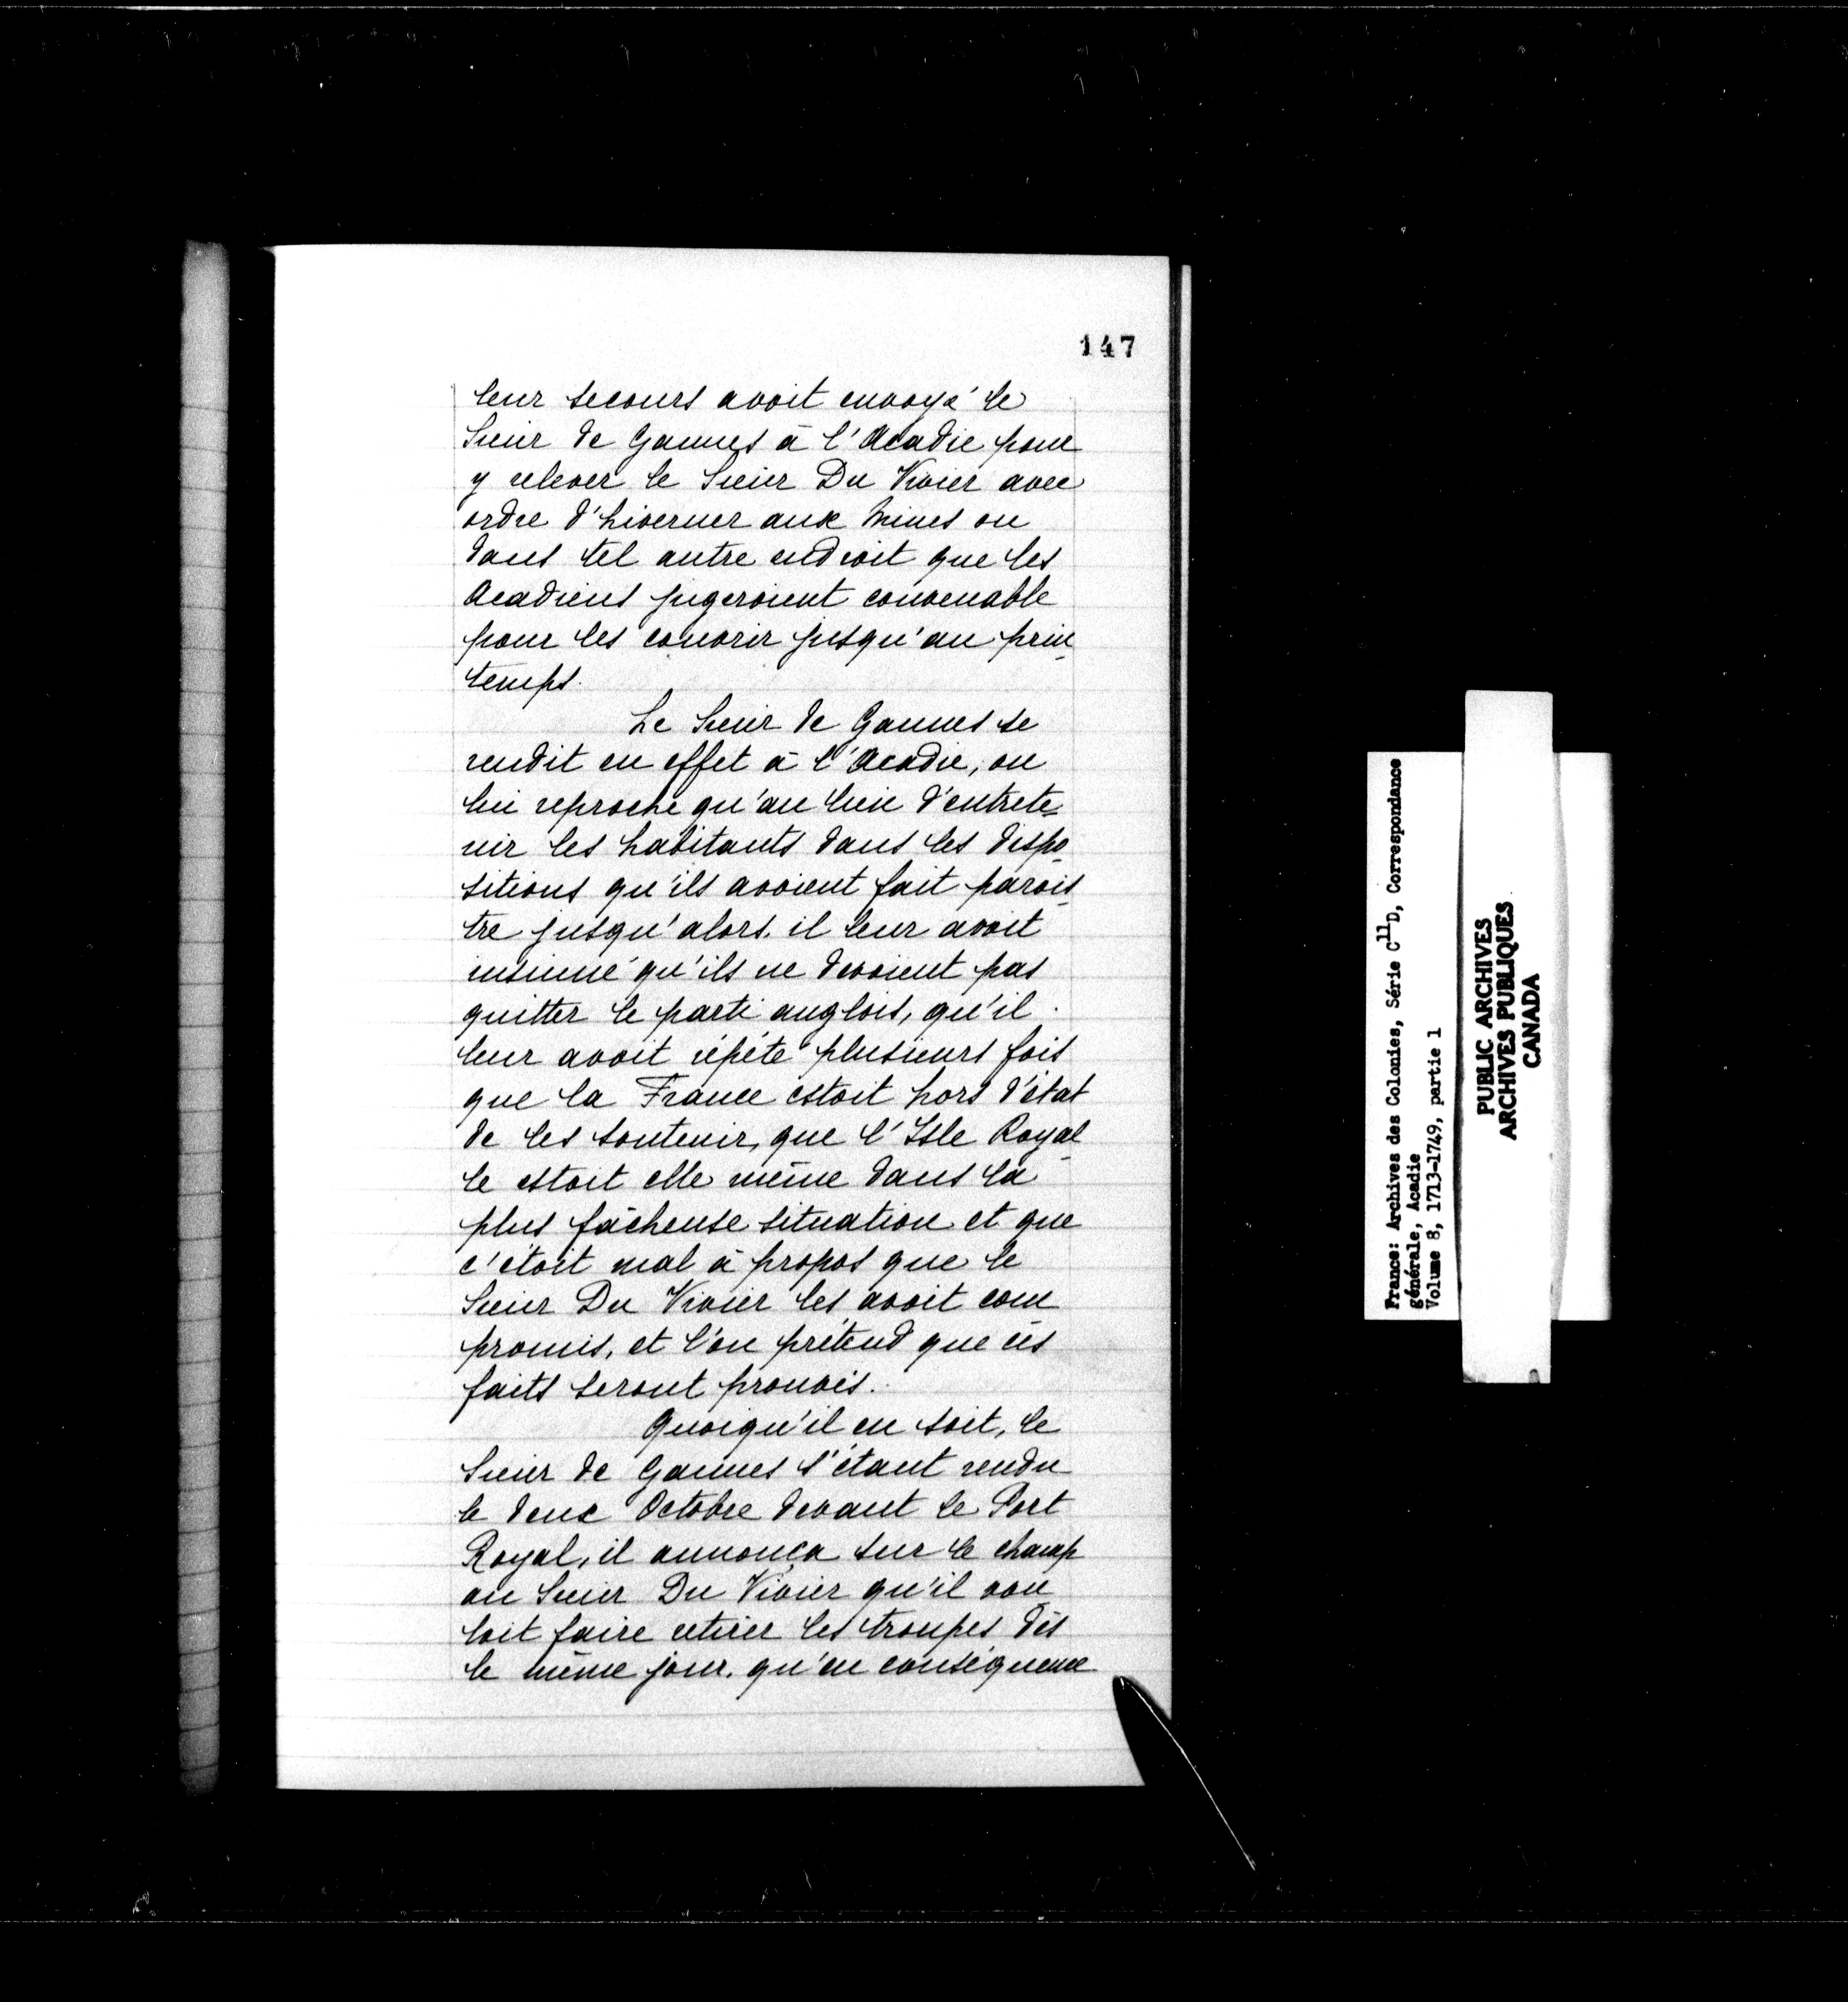 147
leur secours avoit envoyé le
Sieur de Gannes à l'Acadie pour
y relever le Sieur Du Vivier avec
ordre d'hiverner aux Mines ou
dans tel autre endroit que les
Acadiens jugeroient convenable
pour les couvrir jusqu'au prin-
temps.
Le Sieur de Gannes se
rendit en effet à l'Acadie, on
lui reproche qu'au lieu d'entrete-
nir les habitants dans les dispo-
sitions qu'ils avoient fait parois-
tre jusqu'alors, il leur avoit
insinué qu'ils ne devoient pas
quitter le parti anglois, qu'il
leur avoit répété plusieurs fois
que la France estoit hors d'état
de les soutenir, que l'Isle Royal-
le estoit elle même dans la
plus fâcheuse situation et que
c'étoit mal à propos que le
Sieur Du Vivier les avoit com
promis, et l'on prétend que ces
faits seront prouvés.
Quoiqu'il en soit, le
Sieur de Gannes s'étant rendu
le deux Octobre devant le Port
Royal, il annonça sur le champ
au Sieur Du Vivier qu'il vou-
loit faire retirer les troupes dès
le même jour, qu'en conséquence
France: Archives des Colonies, Série C11D, Correspondance
générale, Acadie
Volume 8, 1713-1749, partie 1
PUBLIC ARCHIVES
ARCHIVES PUBLIQUES
CANADA